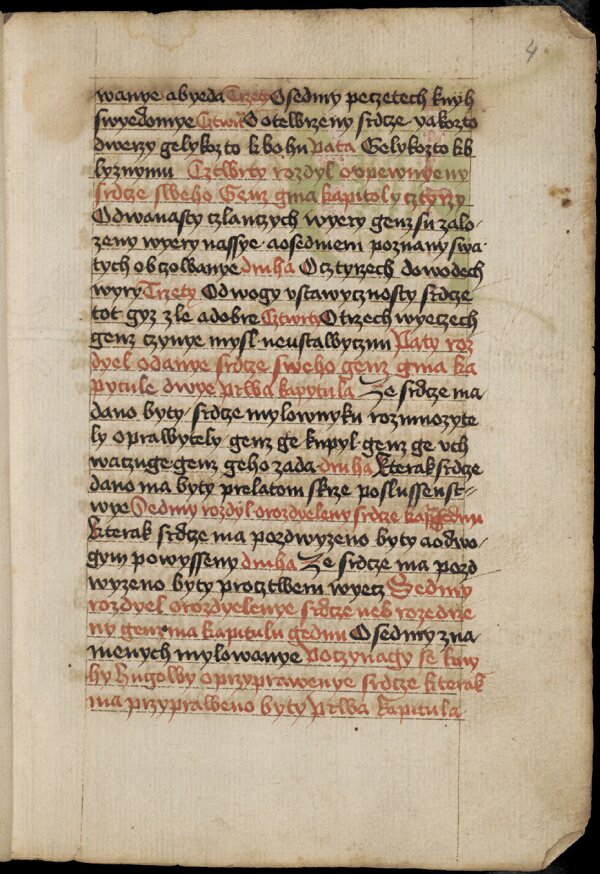 4
wanye abyeda Trzety O sedmy peczetech knyh
swyedomye Cztwrta O otewrzeny srdcze yakozto
dwerzy gelykozto kbohu Pata Gelykozto kb
lyznymu Cztwrty rozdyl o opewnyeny
srdcze sweho Genz gma kapitoly cztyrzy
O dwanasty czlanczych wyery genz su zalo-
zeny wyery nassye a o sedmem poznany swa-
tych obczowanye druha O cztyrzech dowodech
wyry Trzety O dwogy vstawycznosty srdcze
tot gyz zle a dobre Cztwrty O trzech wyeczech
genz czynye mysl neustawycznu Paty roz
dyel o danye srdcze sweho genz gma ka
pytule dwye Prwa kapytula Ze srdcze ma
dano byty srdcze mylownyku rozmnozyte
ly oprawytely genz ge kupyl genz ge vch
waczuge genz geho zada druha kterak srdcze
dano ma byty prelatom skrze poslussenst-
wye Sedmy rozdyl o rozdyeleny srdcze
kterak srdcze ma pozdwyzeno byty a o dwo-
gym powysseny druha Ze srdcze ma pozd
wyzeno byty procztwem wyecz Sedmy
rozdyel o rozdyelenye srdcze neb rozedrze
ny genz ma kapitulu gednu O sedmy zna
menych mylowanye Poczynagy se kny
hy Hugolwy o przyprawenye srdcze kterak
ma przypraweno byty Prwa kapitula